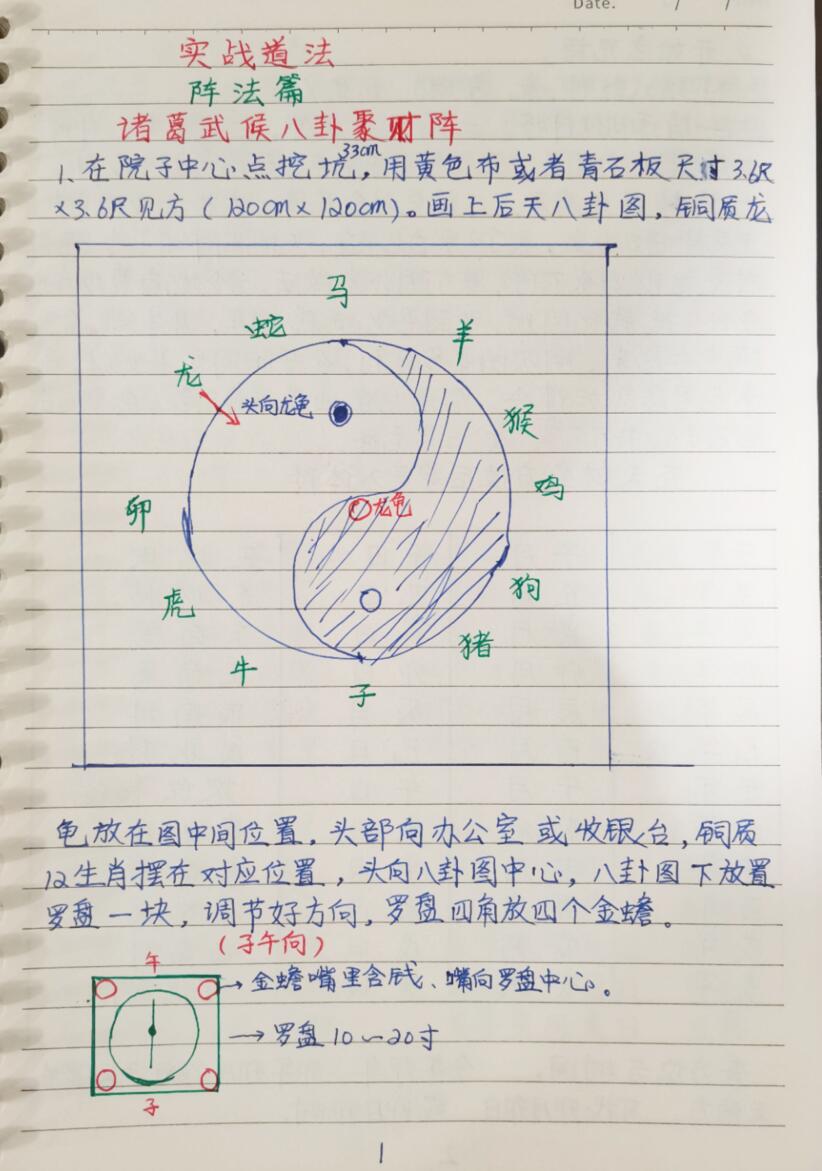 Date. / /
实战道法
阵法篇
诸葛武候八卦聚财阵
33cm
1、在院子中心点挖坑,用黄色布或者青石板尺寸3.6尺
×3.6尺见方(120cm×120cm)。画上后天八卦图,铜质龙
马
蛇
羊
龙
头向龙龟
猴
鸡
卯
龙龟
虎
狗
猪
牛
子
龟放在图中间位置,头部向办公室或收银台,铜质
12生肖摆在对应位置,头向八卦图中心,八卦图下放置
罗盘一块,调节好方向,罗盘四角放四个金蟾。
(子午向)
午
→金蟾嘴里含钱、嘴向罗盘中心。
→罗盘10~20寸
子
1